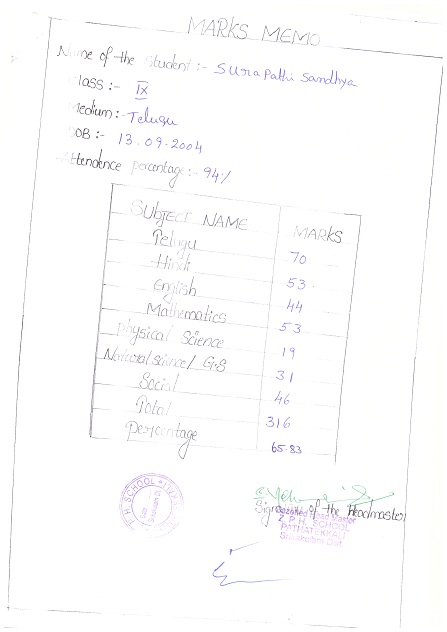 MARKS MEMO
Name of the Student :- Surapathi Sandhya
Class :- IX
Medium :- Telugu
DOB :- 13.09.2004
Attendence percentage :- 94%
SUBJECT NAME MARKS
Pelugu 70
Hindi 53
English 44
Mathematics 53
physical Science 19
Natural science/ G.S 31
Social 46
Potal 316
percentage 65.83
P.H. SCHOOL
Signature of the Headmaster
Gazetted Head Master
Z.P.H. SCHOOL
PATHATEKKALI
Srikakulam Dist.